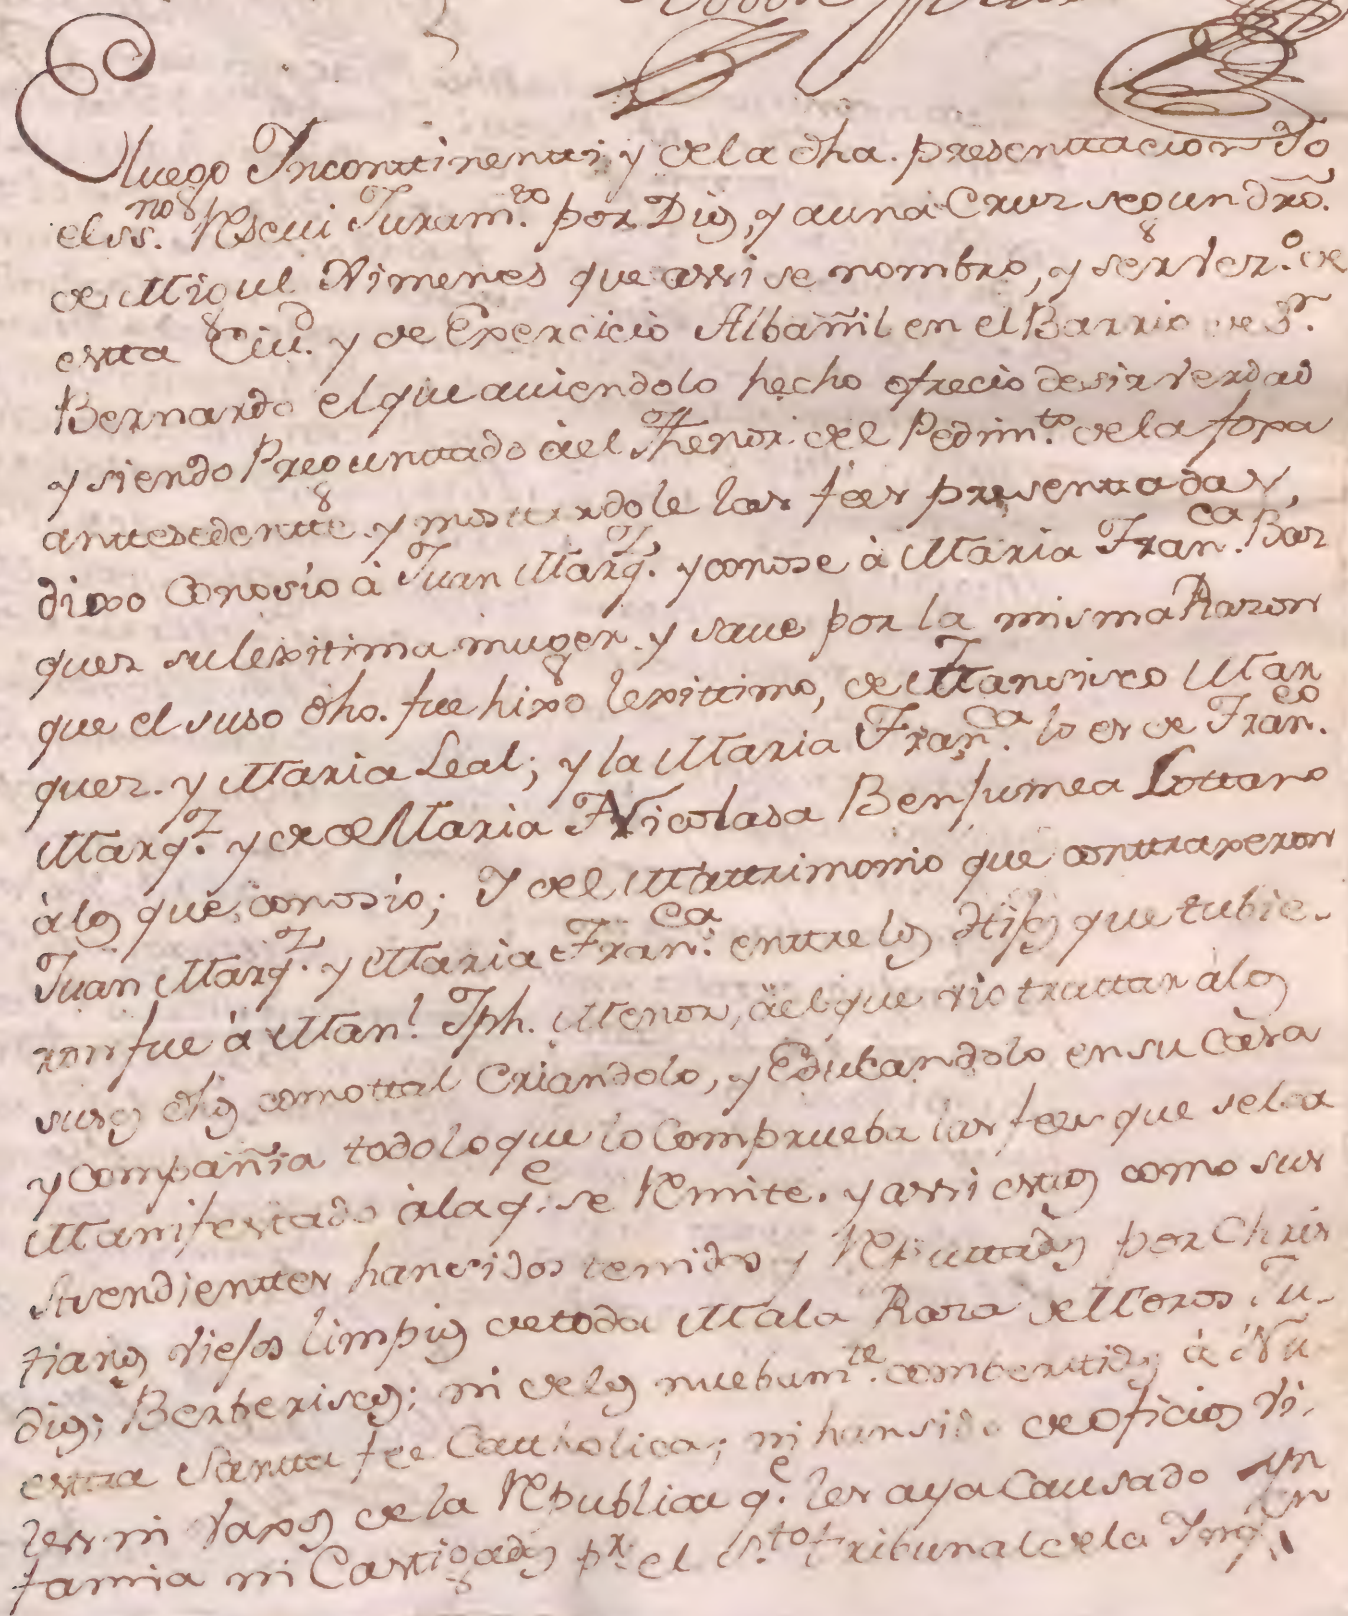 E luego Yncontinentti y de la dha. presenttacion Yo
el ss.no Resevi Juram.to por Dios, y a una Cruz segun dro.
de Miguel Ximenes que assi se nombro, y ser vez.o de
estta Ciud. y de Exercicio Albañil en el Barrio de Sn.
Bernardo el que aviendolo hecho ofrecio desir verdad
y siendo Preguntado àel Thenor del Pedim.to de la foxa
anttesedentte y mostrandole las fees presenttadas,
dixo Conosio à Juan Marq.z y conose à Maria Fran.ca Bas
quez su lexitima muger y save por la misma Razon
que el suso dho. fue hixo lexittimo, de Francisco Mar
quez. y Maria Leal; y la Maria Fran.ca lo es de Fran.co
Marq.z y de Maria Nicolasa Benjumea Lottano
à los que conosio; Y del Mattrimonio que conttraxeron
Juan Marq.z y Maria Fran.ca enttre los Hijos que tubie-
ron fue à Man.l Jph. Menor, àel que vio trattar à los
susos dhos como ttal Criandolo, y Educandolo en su Casa
y Compañia todo lo que lo Comprueba las fees que se le a
Manifestado à la q.e se Remite. y assi estos como sus
Asendienttes han sidos tenidos y Reputtados por Chris
tianos viejos limpios de toda Mala Raza de Moros, Ju-
dios, Berberiscos; ni de los nuebam.te comberttidos à Nu
estra Santta fee Cattholica; ni han sido de oficios Vi-
les ni vaxos de la Republica q.e les aya Causado Yn
famia ni Castigados pr. el S.to tribunal de la Ynq.on